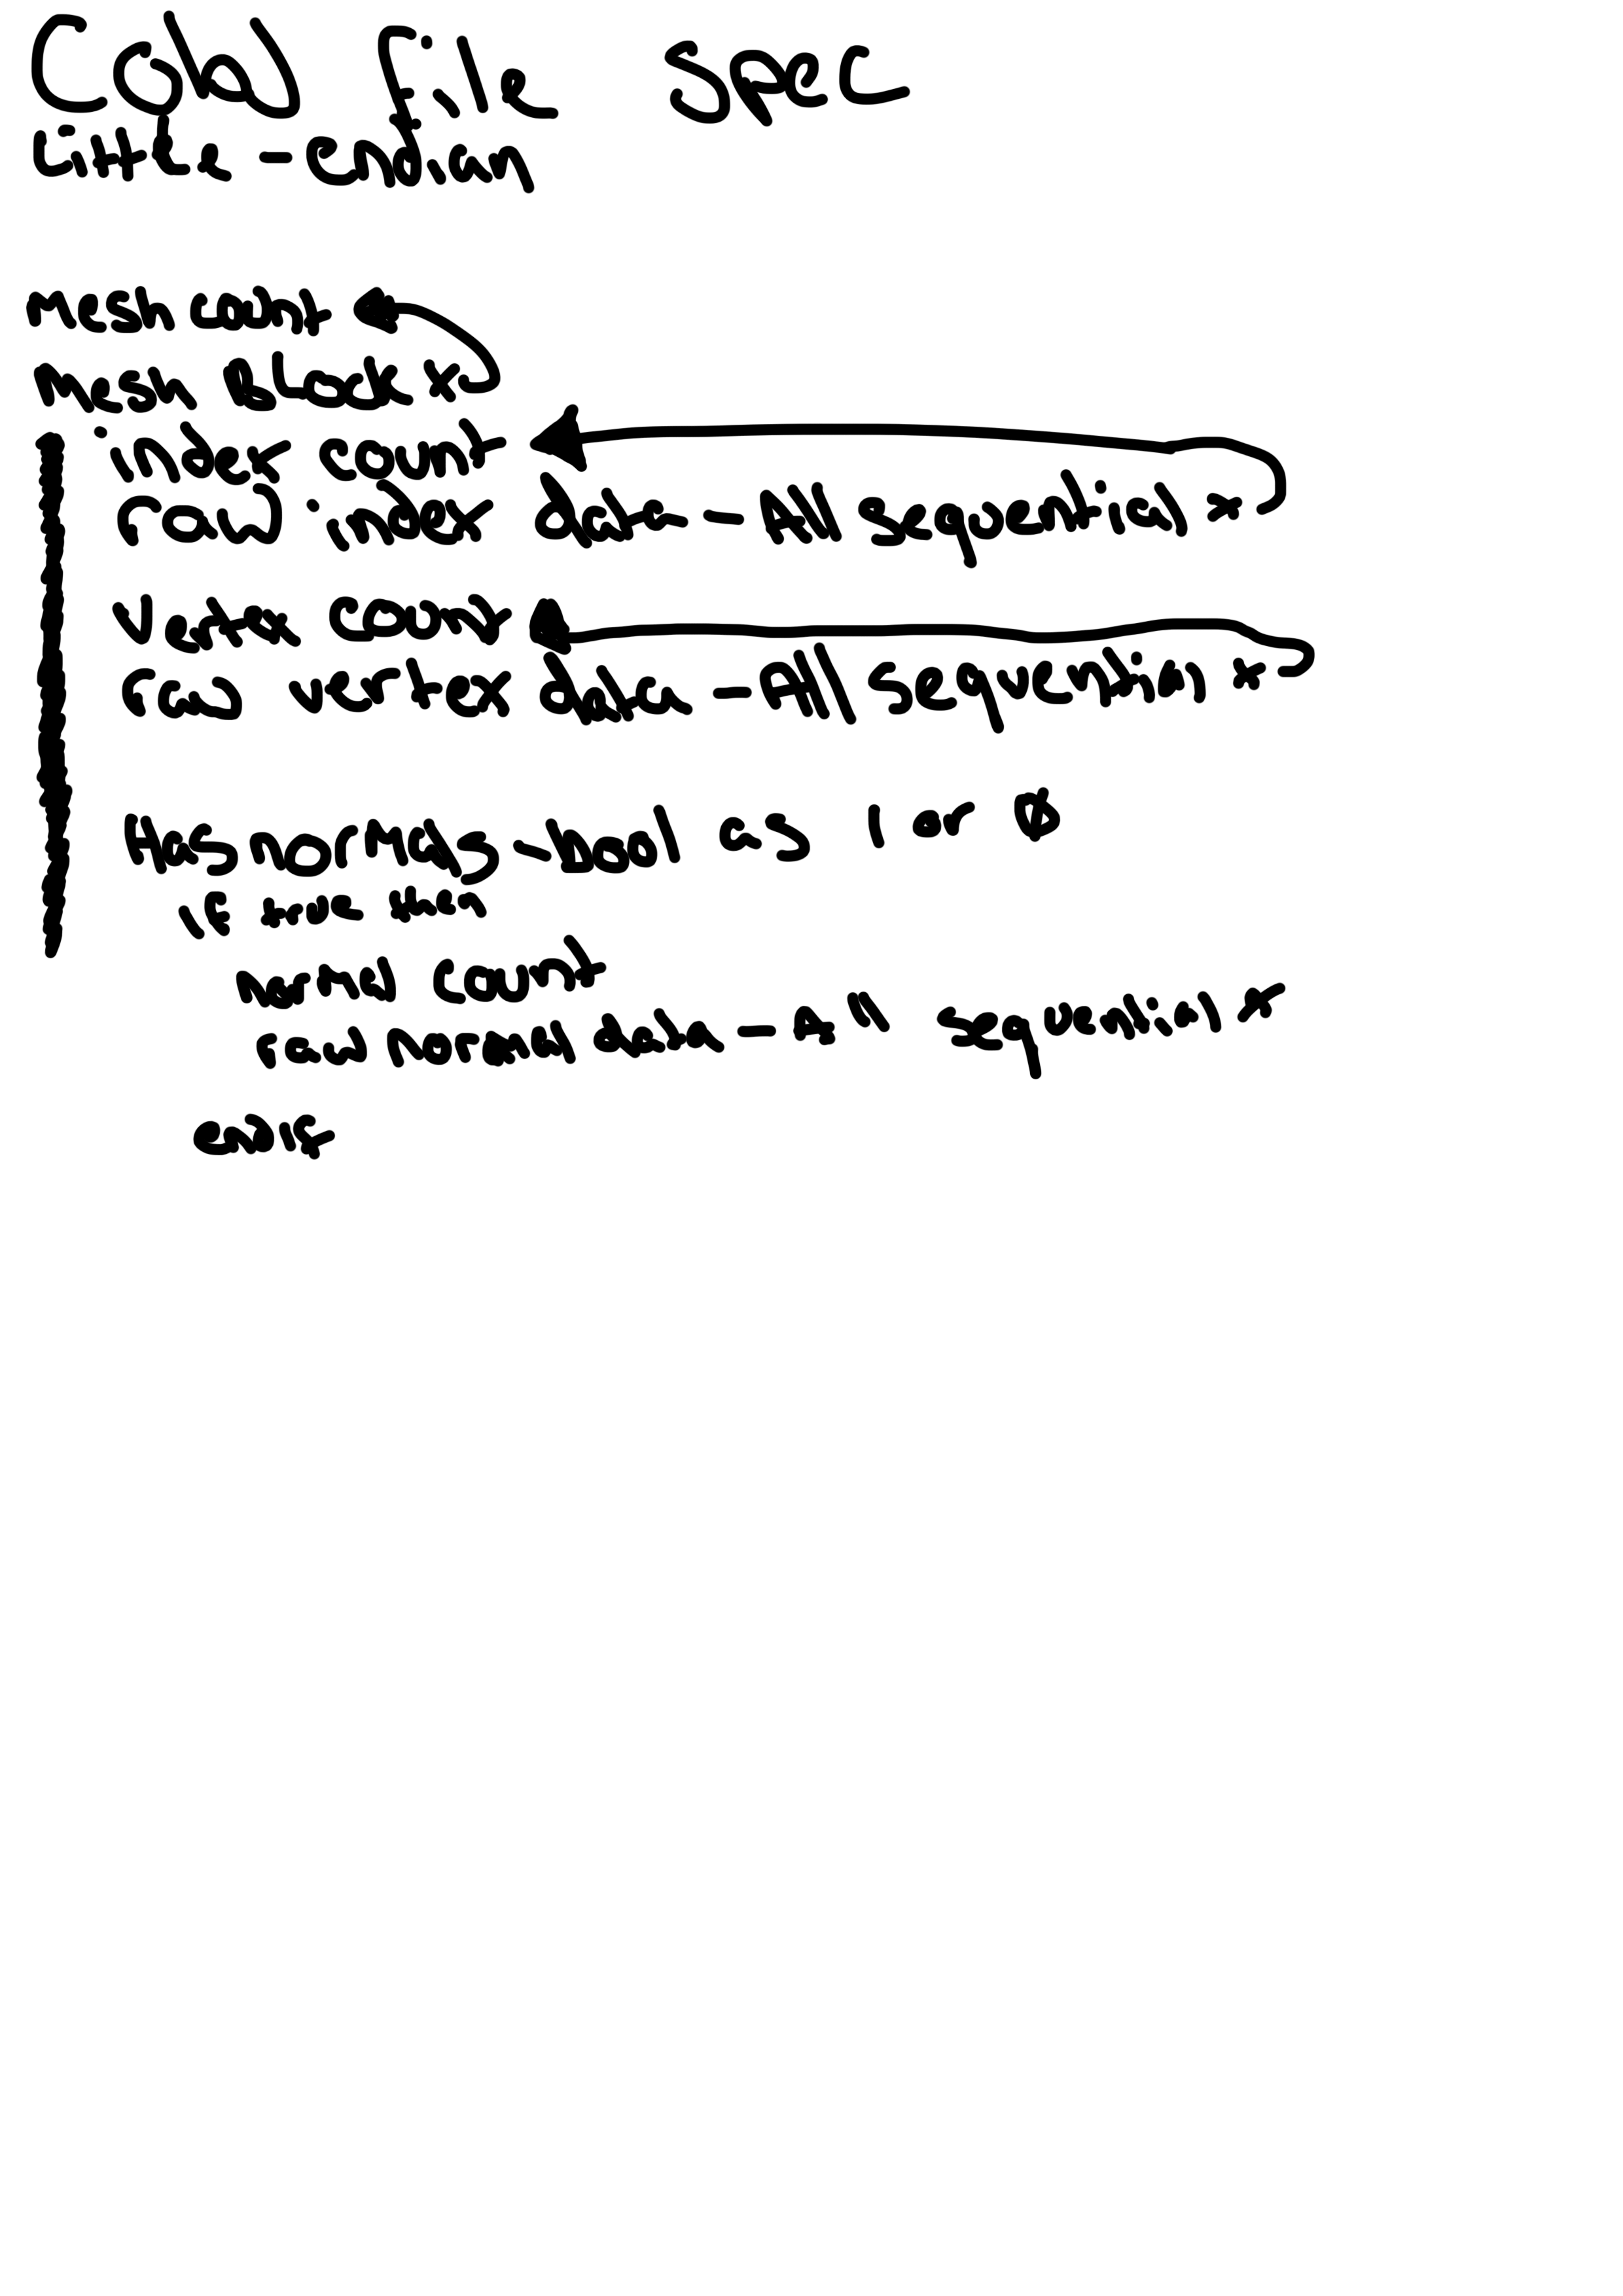 Cobd file spec
little-endian
mesh count
Mesh block x
index count
raw index data - All sequential x
Vertex count
raw vertex data - All sequential x
Has normals - bool as 1 or 0
if true then
normal count
raw normal data - all sequential x
endif